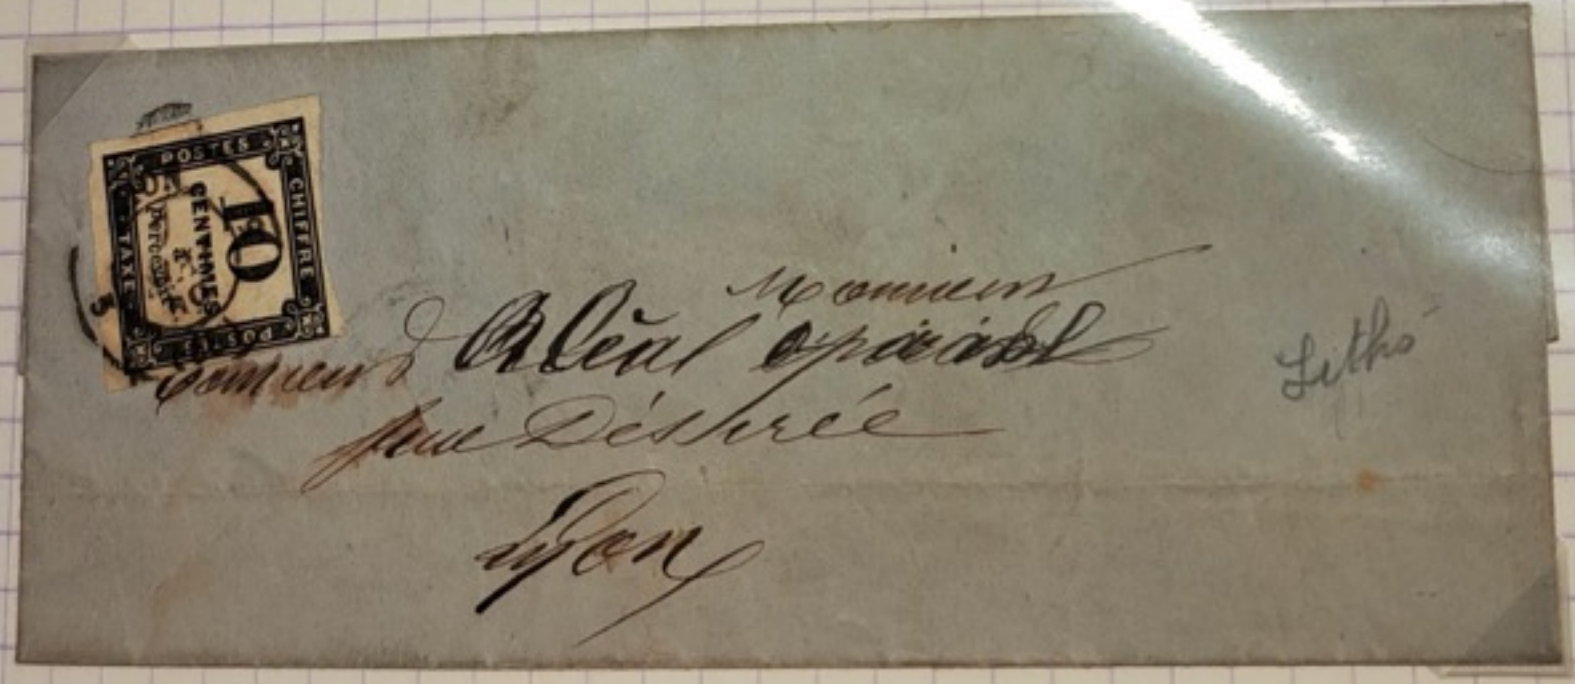 POSTES
CHIFFRE
TAXE
POSTES
10
CENTIMES
à percevoir
5
Monsieur
Monsieur
rue Désirée
Lyon
Litho